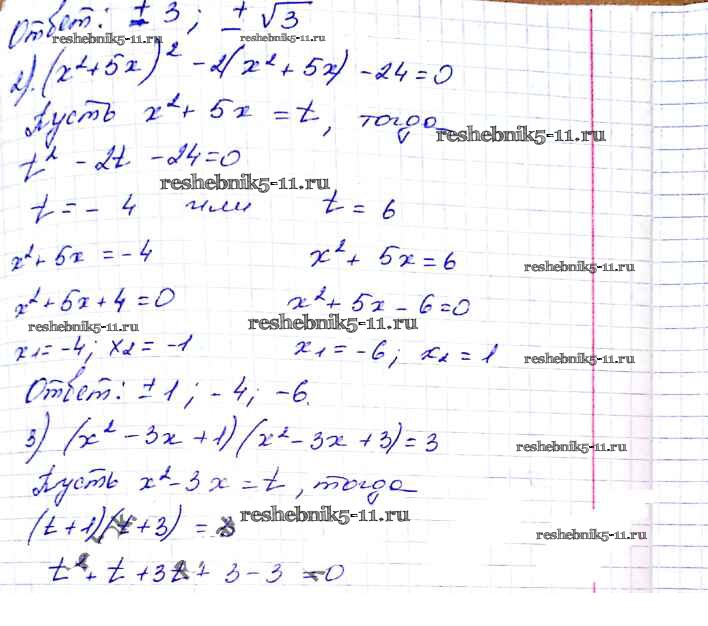 Ответ: ± 3 ; ± √3
reshebnik5-11.ru reshebnik5-11.ru
2). (x²+5x)² - 2(x²+5x) - 24=0
Пусть x²+5x = t, тогда
reshebnik5-11.ru
t² - 2t - 24=0
reshebnik5-11.ru
t = - 4 или t = 6
x²+5x = -4 x²+ 5x=6
reshebnik5-11.ru
x²+5x+4=0 x²+5x-6=0
reshebnik5-11.ru reshebnik5-11.ru
x₁=-4; x₂= -1 x₁=-6; x₂ = 1
reshebnik5-11.ru
Ответ: ±1 ; -4; -6.
3) (x²-3x+1)(x²-3x+3)=3
reshebnik5-11.ru
Пусть x²-3x=t, тогда
(t+1)(t+3) = 3
reshebnik5-11.ru reshebnik5-11.ru
t²+ t+3t+ 3-3 =0